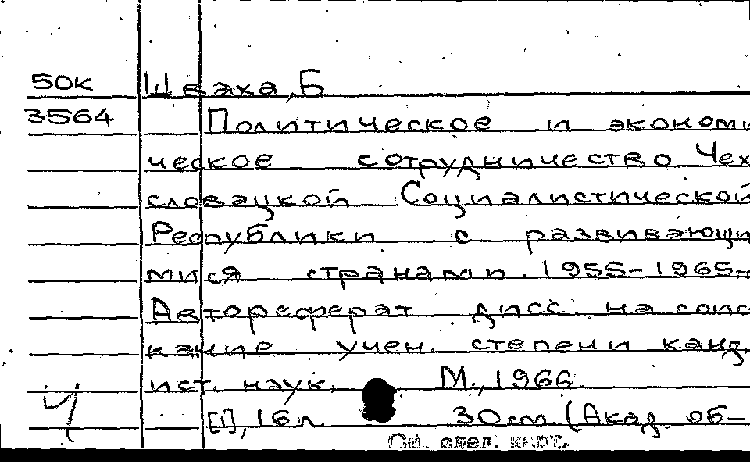 50К Шваха, Б
3564 Политическое и экономи
ческое сотрудничество Чех
словацкой Социалистической
Республики с развивающи
мися странами. 1955-1965-
Автореферат дисс. на соис
кание учен. степени канд.
ист. наук. М., 1966.
[1], 16 л. 30 см (Акад. об-
См. след. карт.